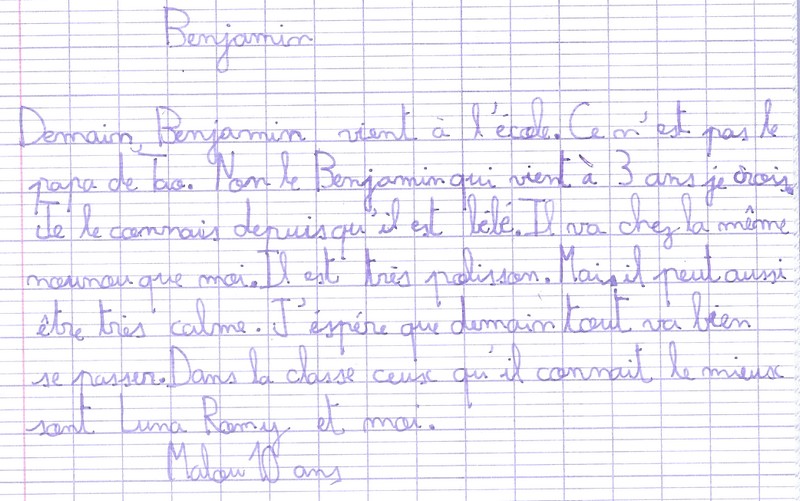 Benjamin
Demain, Benjamin vient à l'école. Ce n'est pas le
papa de Tao. Non le Benjamin qui vient à 3 ans je crois.
Je le connais depuis qu'il est bébé. Il va chez la même
nounou que moi. Il est très polisson. Mais, il peut aussi
être très calme. J'éspére que demain tout va bien
se passer. Dans la classe ceux qu'il connait le mieux
sont Luna Romy et moi.
Malou 10 ans